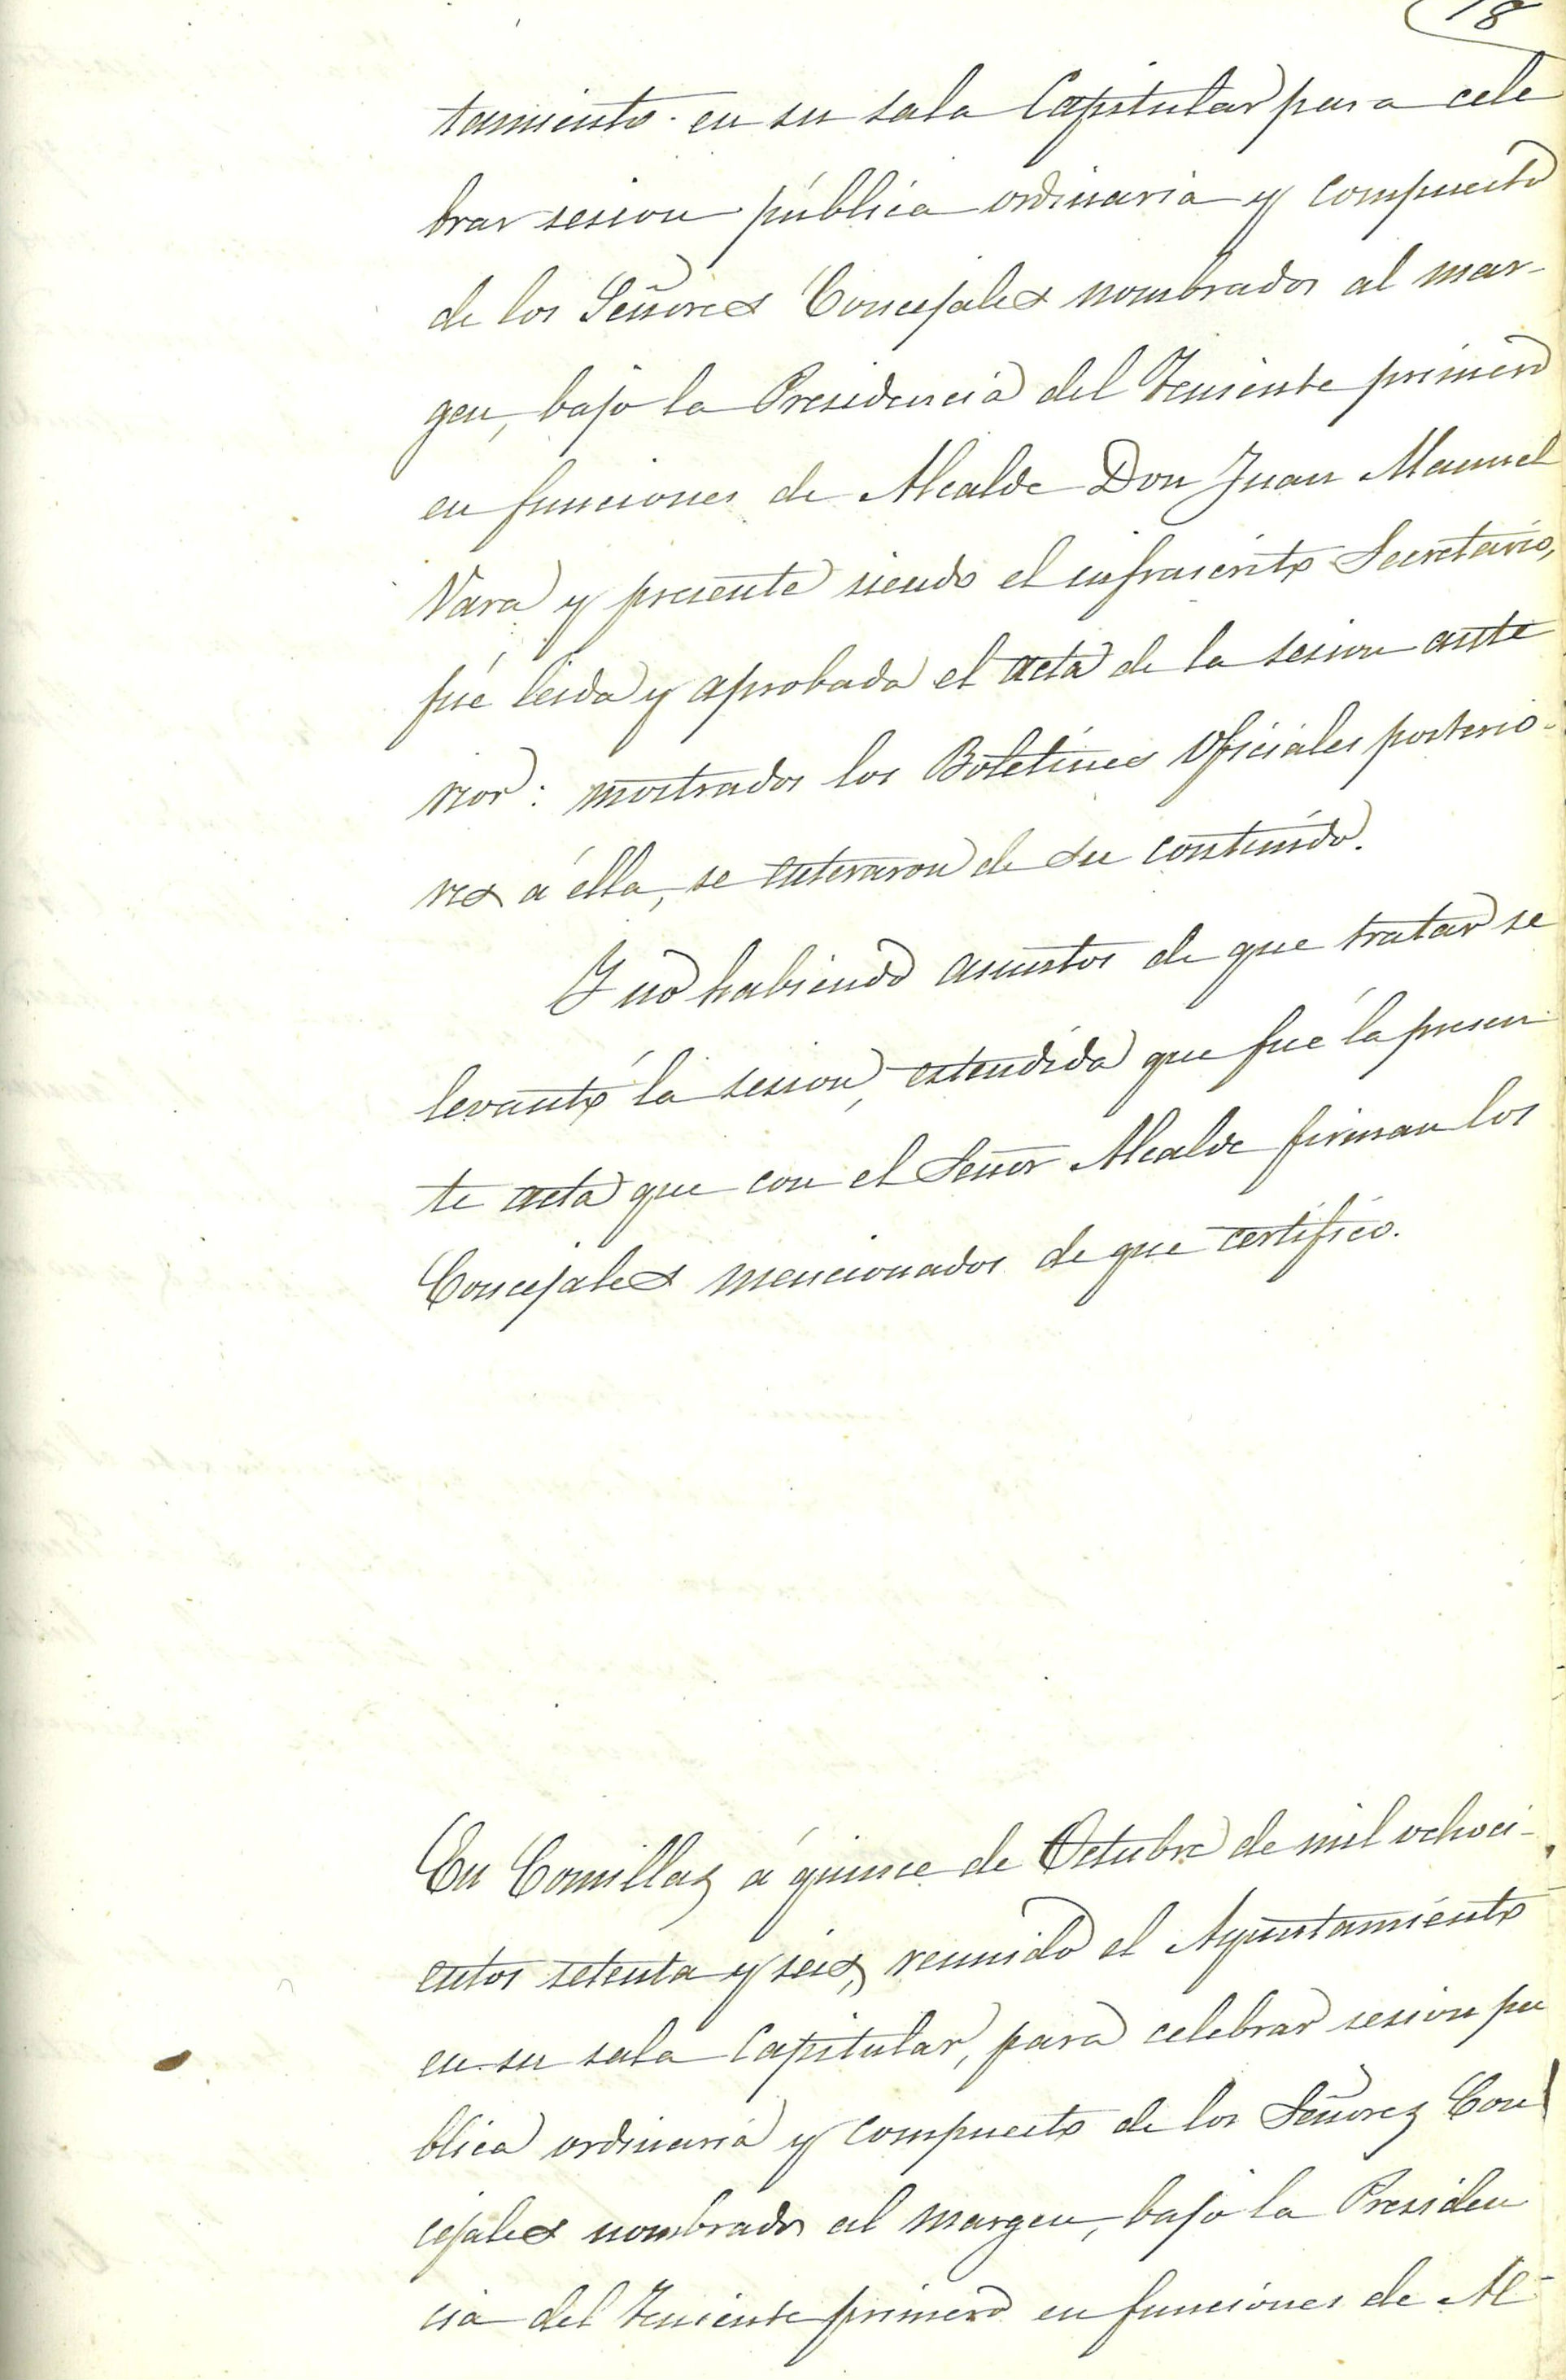 18
tamiento en su sala Capitular para cele
brar sesion pública ordinaria y compuesto
de los Señores Concejales nombrados al mar-
gen, bajo la Presidencia del Teniente primero
en funciones de Alcalde Don Juan Manuel
Vara y presente siendo el infrascrito Secretario,
fué leida y aprobada el acta de la sesion ante
rior: mostrados los Boletines Oficiales posterio-
res á élla, se enteraron de su contenido.
Y no habiendo asuntos de que tratar se
levantó la sesion, estendida que fué la presen
te acta que con el Señor Alcalde firman los
Concejales mencionados de que certifico.
En Comillas á quince de Octubre de mil ochoci-
entos setenta y seis, reunido el Ayuntamiento
en su sala Capitular, para celebrar sesion pu
blica ordinaria y compuesto de los Señores Con
cejales nombrados al margen, bajo la Presiden
cia del Teniente primero en funciones de Al-